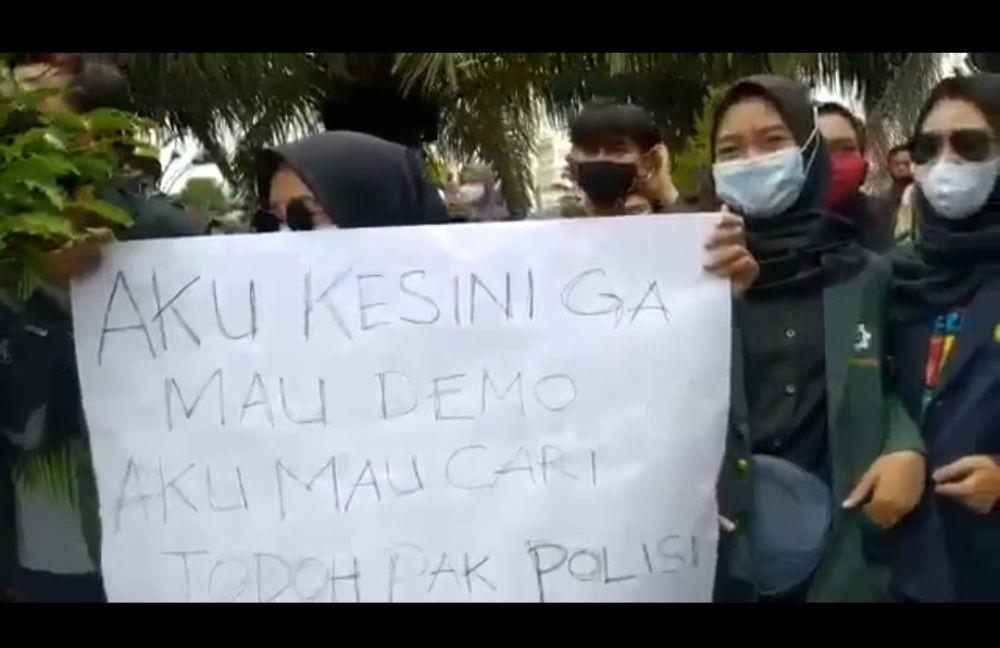 AKU KESINI GA
MAU DEMO
AKU MAU CARI
JODOH PAK POLISI